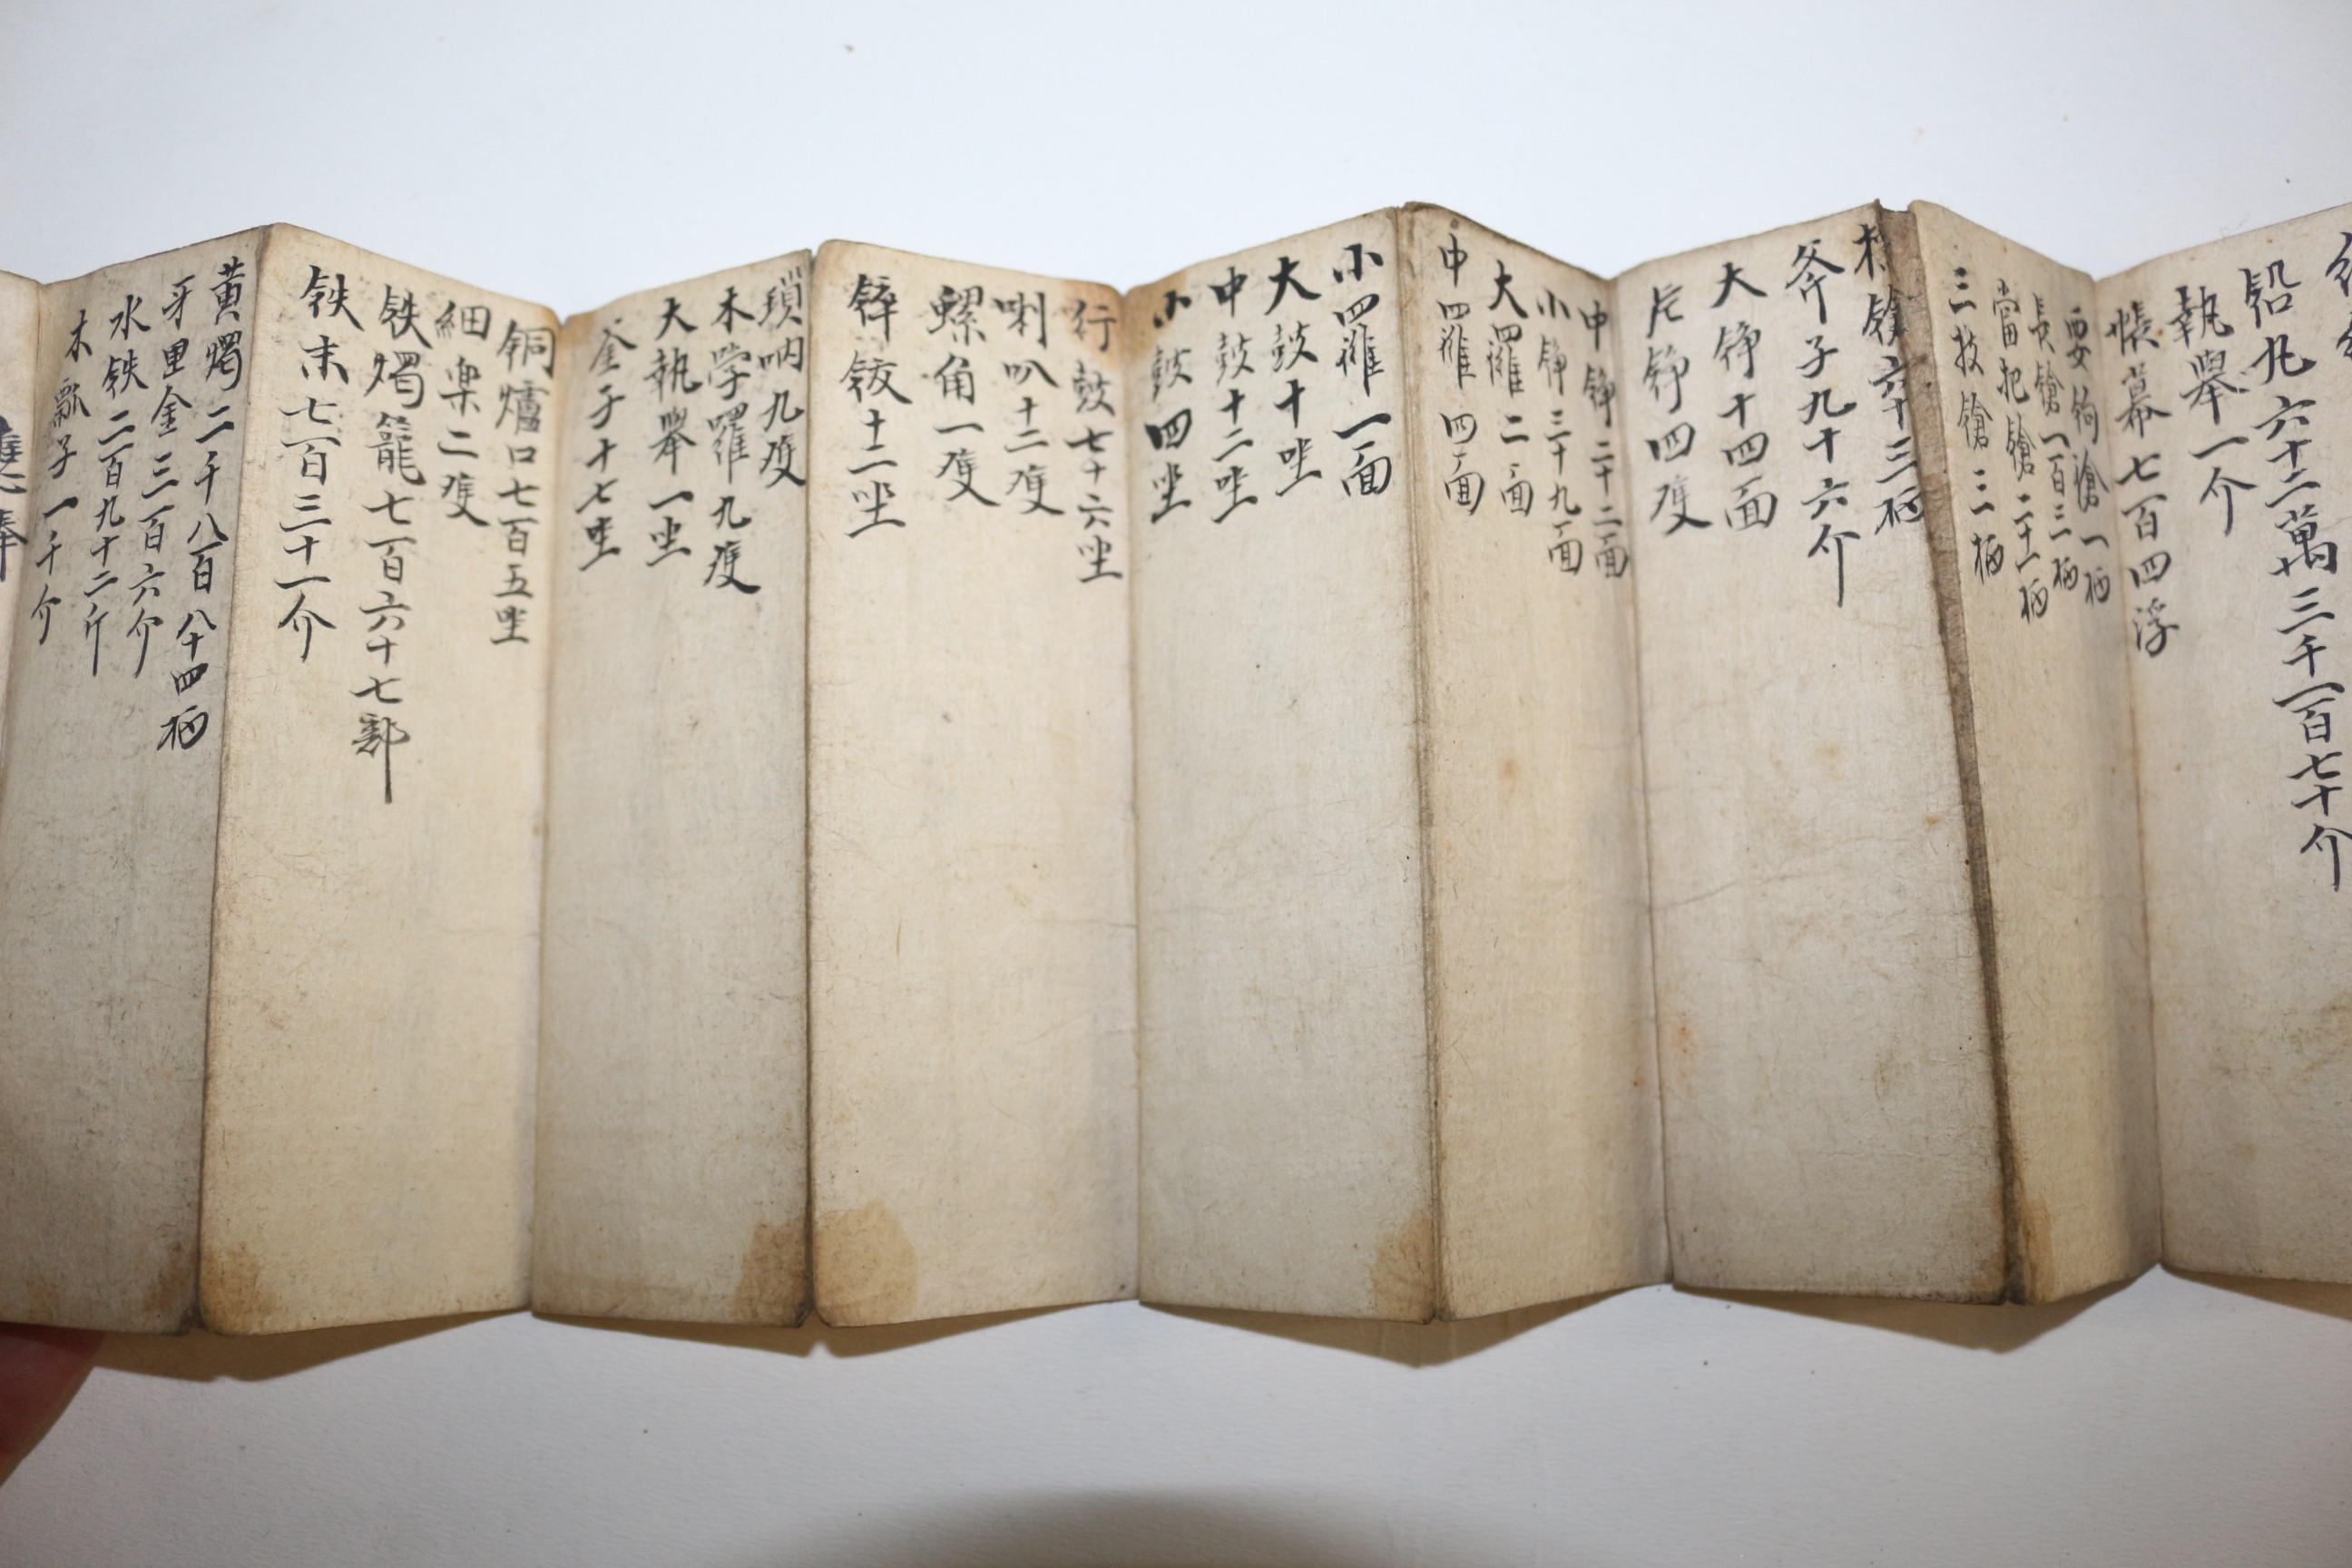 鉛九六十二萬三千一百七十介
執擧一介
帳幕七百四浮
要鉤鎗一柄
長鎗一百三柄
當把鎗二十一柄
三技鎗三柄
鎗六十三柄
斧子九十六介
大錚十四面
片錚四隻
中錚二十二面
小錚三十九面
大囉二面
中囉四面
小囉一面
大鼓十坐
中鼓十二坐
小鼓四坐
行鼓七十六坐
喇叭十二隻
螺角一隻
鉡鈸十二坐
瑣吶九隻
木学囉九隻
大執擧一坐
釜子十七坐
铜爐口七百五坐
細楽二隻
铁燭籠七百六十七部
铁末七百三十一介
黄燭二千八百八十四柄
牙里金三百六介
水铁二百九十二斤
木瓢子一千介